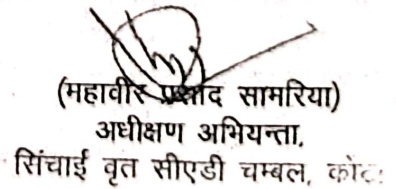 (महावीर प्रसाद सामरिया)
अधीक्षण अभियन्ता,
सिंचाई वृत सीएडी चम्बल, कोटा